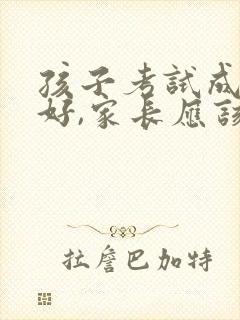 孩子考試成
好,家長應該
拉詹巴加特